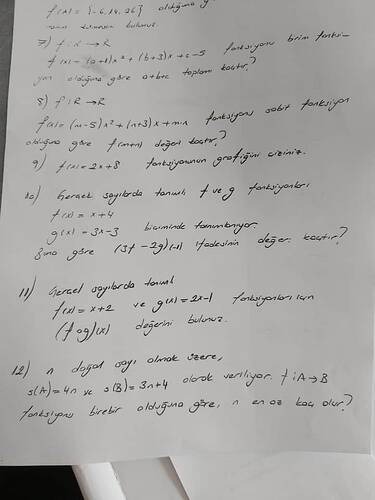 f(x) = {-6, 14, 26} olduğuna g
bulunuz.
7) f: R → R
f(x) = (a+1)x² + (b+3)x + c-5 fonksiyonu birim fonksi-
yon olduğuna göre a+b+c toplamı kaçtır?
8) f: R → R
f(x) = (m-5)x² + (n+3)x + m.n fonksiyonu sabit fonksiyon
olduğuna göre f(m+n) değeri kaçtır?
9) f(x) = 2x+8 fonksiyonunun grafiğini çiziniz.
10) Gerçek sayılarda tanımlı f ve g fonksiyonları
f(x) = x+4
g(x) = 3x-3 biçiminde tanımlanıyor.
Buna göre (3f - 2g)(-1) ifadesinin değeri kaçtır?
11) Gerçel sayılarda tanımlı
f(x) = x+2 ve g(x) = 2x-1 fonksiyonları için
(fog)(x) değerini bulunuz.
12) n doğal sayı olmak üzere,
s(A) = 4n ve s(B) = 3n+4 olarak veriliyor. f: A→B
fonksiyonu birebir olduğuna göre, n en az kaç olur?